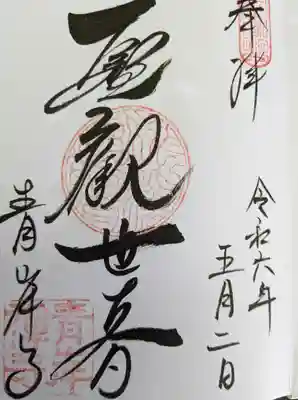 奉拝
令和六年
五月二日
聖觀世音
青岸寺